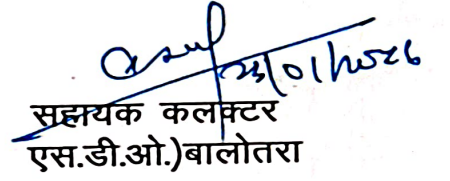 23/01/2026
सहायक कलक्टर
एस.डी.ओ.)बालोतरा